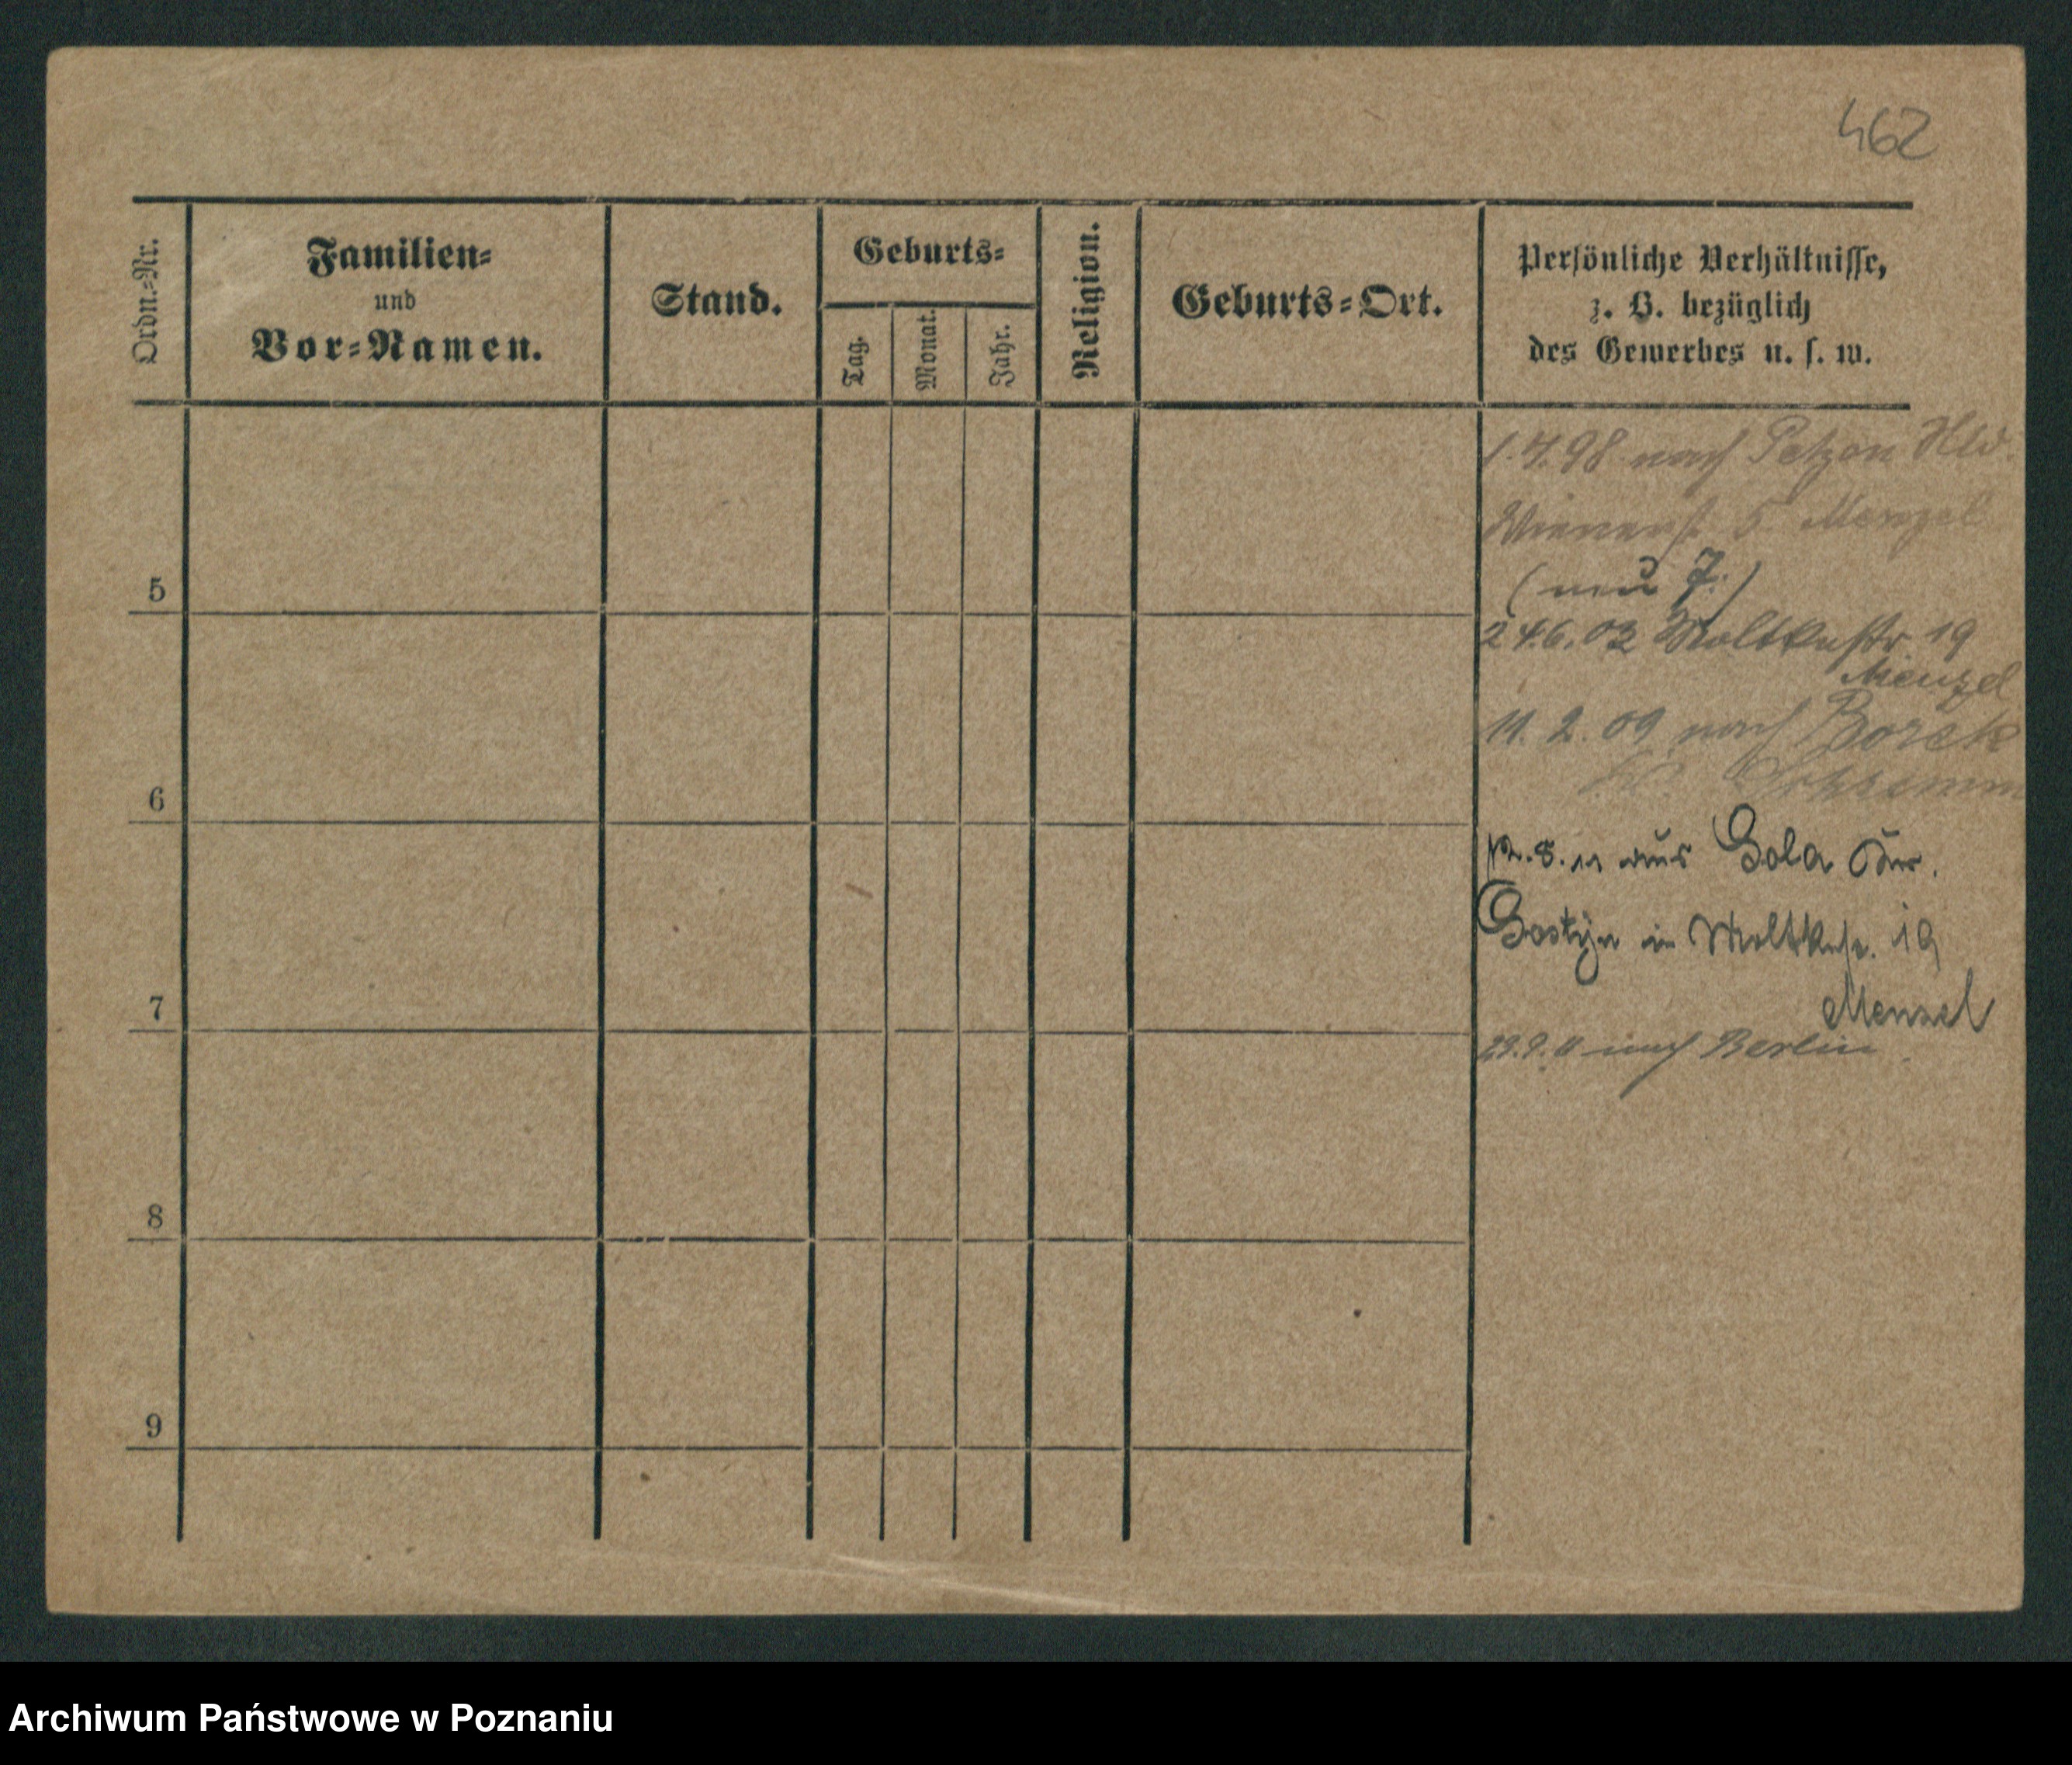 462
Ordn.-Nr.
Familien-
und
Vor-Namen.
Stand.
Geburts-
Tag.
Monat.
Jahr.
Religion.
Geburts-Ort.
Persönliche Verhältnisse,
z. B. bezüglich
des Gewerbes u. s. w.
1.7.98 nach
Wienerst. 5. Menzel
(neu 7.)
5
24.6.02 Moltkestr. 19
Menzel
11. 2. 09 nach Borek
6
8. 11 aus Gola
Gostyn in Moltkestr. 19
Menzel
7
29.9.11 nach Berlin
8
9
Archiwum Państwowe w Poznaniu